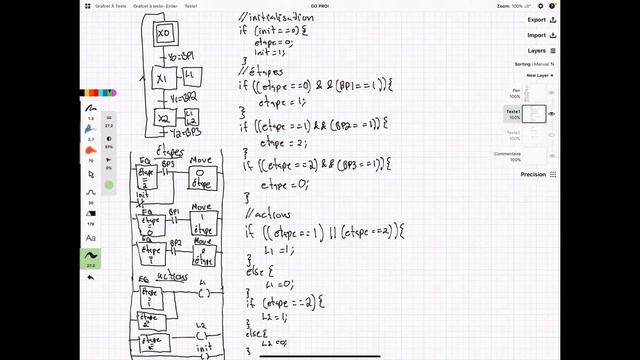 Grafcet À Texte
Grafcet à texte - Entier
Texte1
GO PRO!
Zoom: 100%
Export
Import
Layers
Sorting: Manual
New Layer
Pen
100%
Texte1
100%
Texte2
100%
Commentaire
100%
Precision
1.3
2.7
70
50
30
178
Aa
27.2
27.2
X0
Y0=BP1
X1
L1
Y1=BP2
X2
L1
L2
Y2=BP3
Étapes
EQ
BP3
Move
étape
=
2
0
étape
init
EQ
BP1
Move
étape
=
0
1
étape
EQ
BP2
Move
étape
=
1
2
étape
actions
EQ
L1
étape
=
1
étape
2
L2
étape
2
init
//initialisation
if (init==0){
étape=0;
init=1;
}
//étapes
if ((étape==0) && (BP1==1)){
étape=1;
}
if ((étape==1) && (BP2==1)){
étape=2;
}
if ((étape==2) && (BP3==1)){
étape=0;
}
//actions
if ((étape==1) || (étape==2)){
L1=1;
}
else {
L1=0;
}
if (étape==2){
L2=1;
}
else{
L2=0;
}